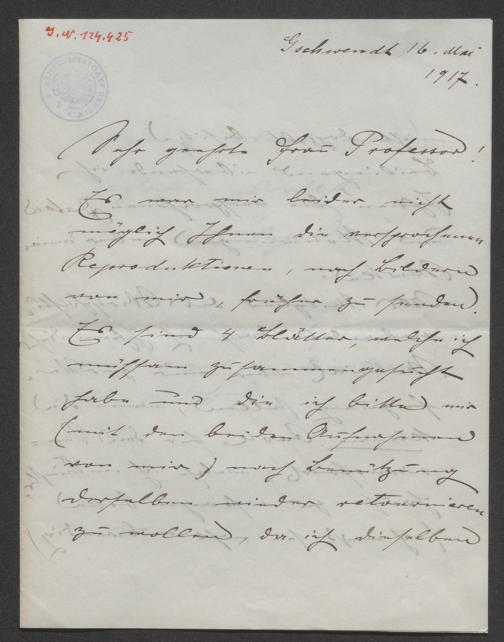 J.N. 124.425
Gschwendt 16. Mai
1917.
Sehr geehrte Frau Professor!
Es war mir leider nicht
möglich Ihnen die versprochenen
Reproduktionen, nach Bildern
von mir früher zu senden.
Es sind 4 Blätter, welche ich
mühsam zusammengesucht
habe und die ich bitte mir
(mit den beiden Aufnahmen
von mir) nach Benützung
derselben wieder retounieren
zu wollen, da ich dieselben